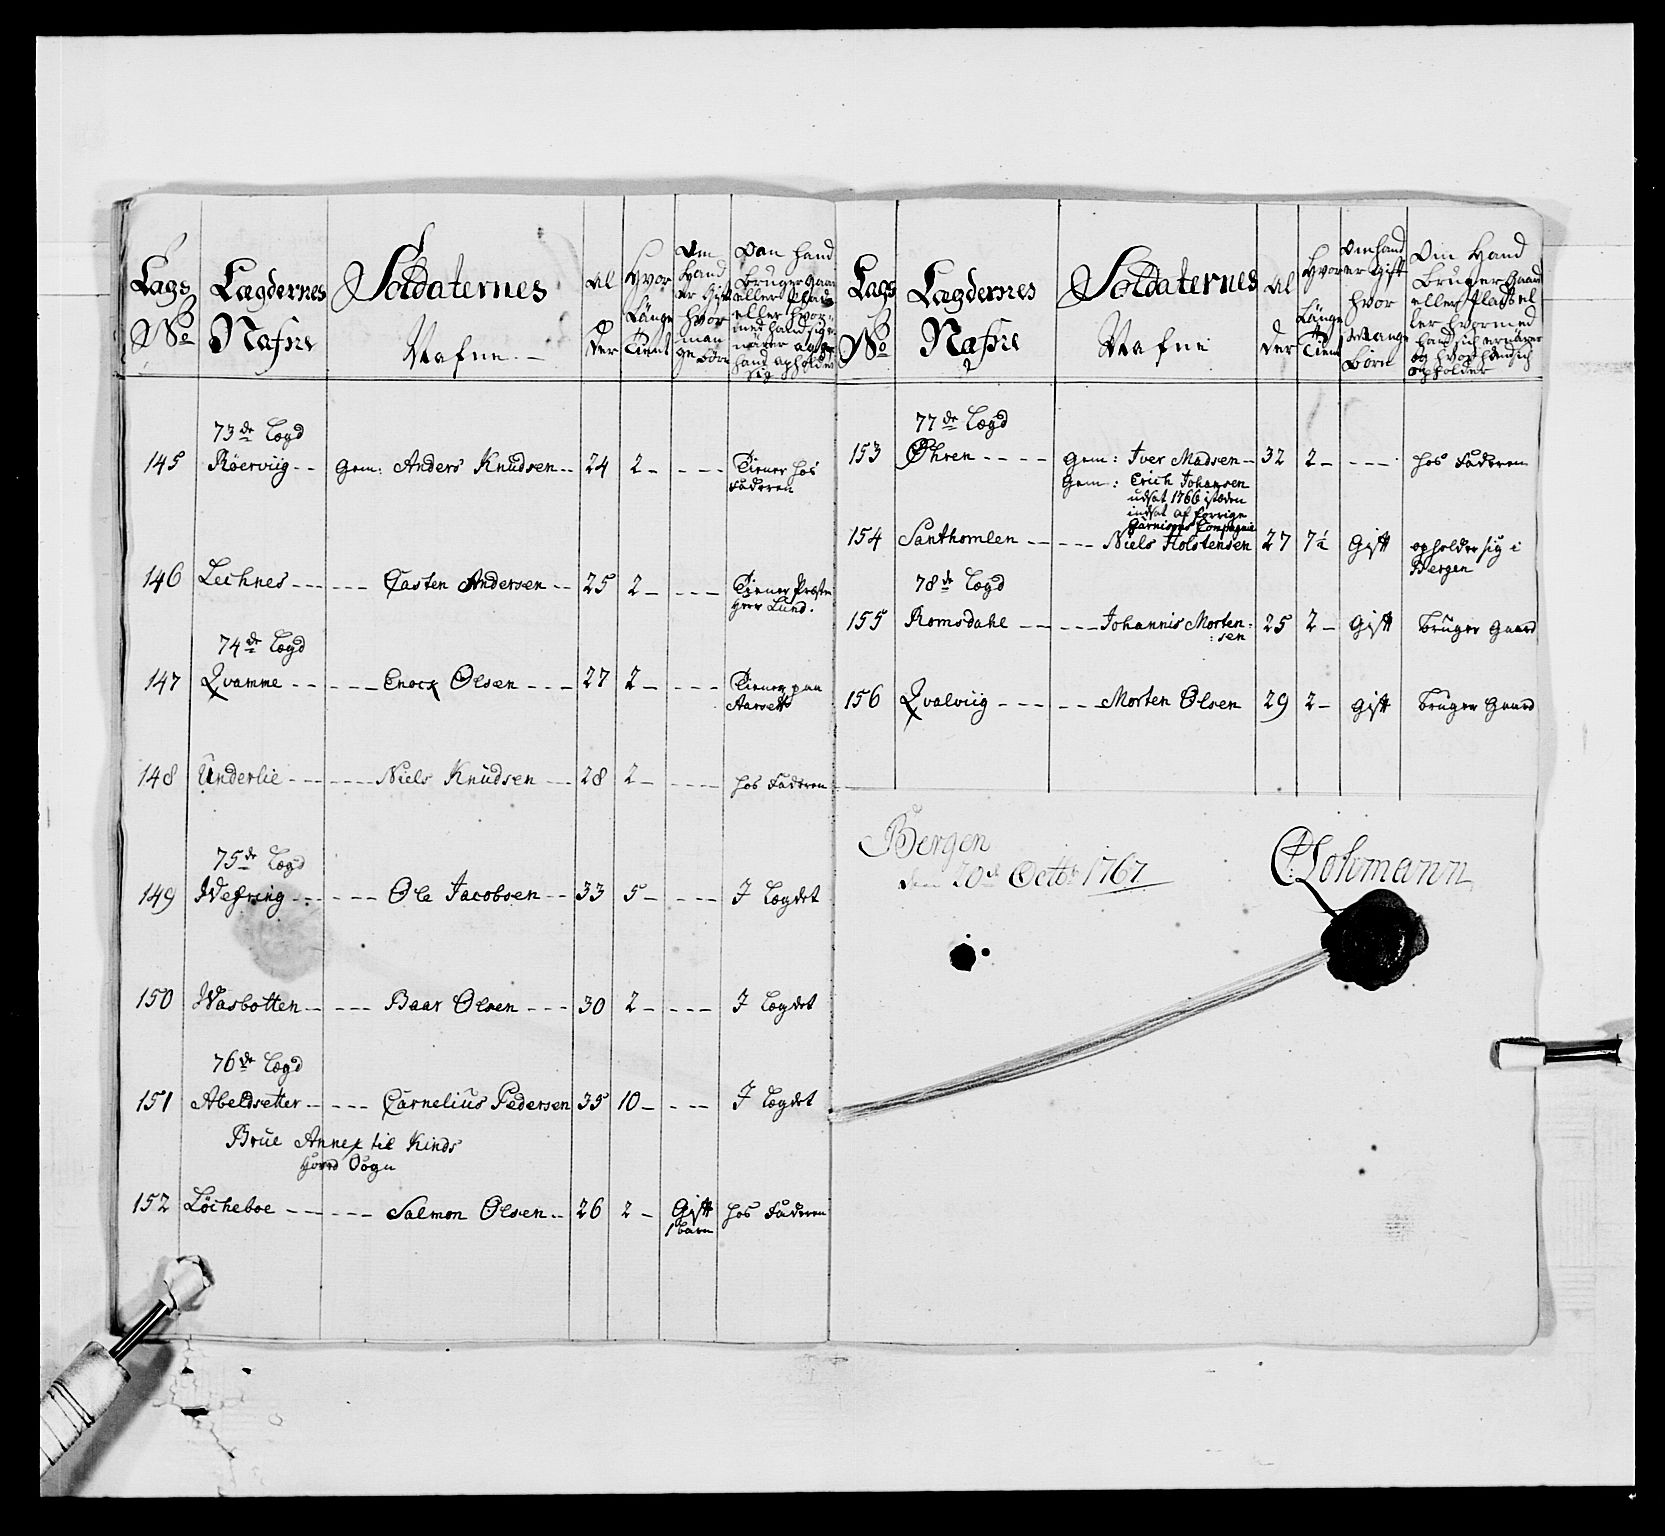 Lags No
Lægdernes Nafne
Soldaternes Nafne
Alder
Hvor Længe Tient
Om Hand Er Gift hvor mange Børn
Om Hand Bruger Gaard eller Plads eller hvormed hand sig nærer og hvor hand opholder sig
73de Lægd
145 Røerviig Gem: Anders Knudsen 24 2 Tiener hos Faderen
146 Lechnes Casten Andersen 25 2 Tiener Præsten Herr Lund.
74de Lægd
147 Qvamme Enock Olsen 27 2 Tiener paa Aarseth
148 Underlie Niels Knudsen 28 2 hos Faderen
75de Lægd
149 Wefring Ole Jacobsen 33 5 I Lægdet
150 Wasbotten Baar Olsen 30 2 I Lægdet
76de Lægd
151 Abeldsetter Carnelius Pedersen 35 10 I Lægdet
Brue Annex til Kinds
Hoved Sogn
152 Løcheboe Salmon Olsen 26 2 Gift 1 barn hos Faderen
Lags No
Lægdernes Nafne
Soldaternes Nafne
Alder
Hvor Længe Tient
Om hand er Gift hvor Mange Børn
Om Hand Bruger Gaard eller Plads eller hvormed hand sich ernærer og hvor hand sich opholder
77de Lægd
153 Øhren Gem: Iver Madsen 32 2 hos Faderen
Gem: Erich Johansen
udsat 1766 isteden
indsat af forrige
Garnisons Compagnie
154 Santhomlen Niels Holstensen 27 7½ Gift opholder sig i Bergen
78de Lægd
155 Romsdahl Johannis Mortensen 25 2 Gift bruger Gaard
156 Qvalviig Morten Olsen 29 2 Gift bruger Gaard
Bergen
den 20de Octbr 1767
Lohmann